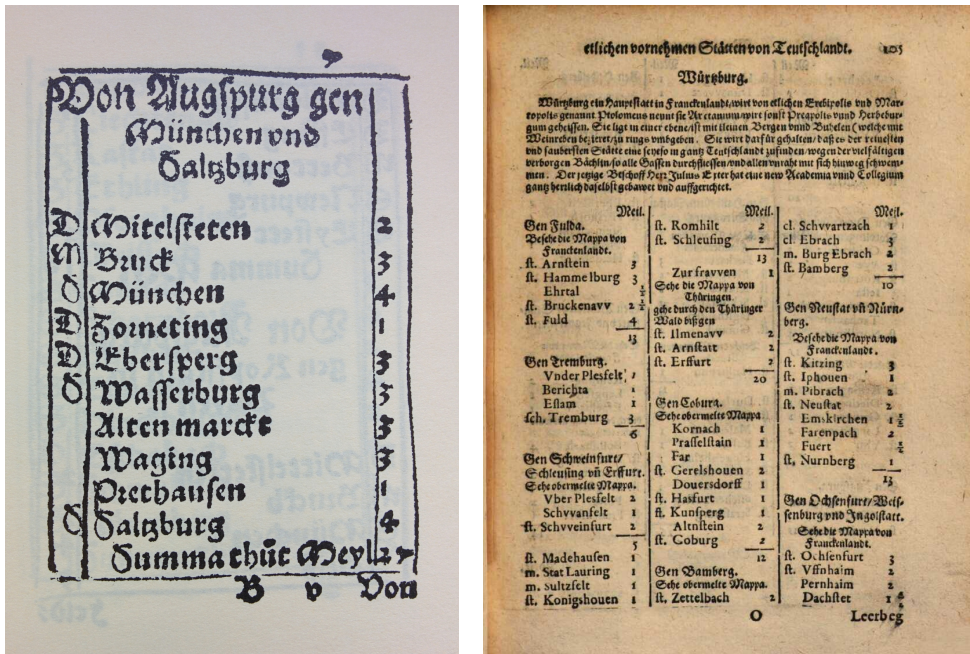 Von Augspurg gen
München vnd
Saltzburg
D Mitelsteten 2
M Bruck 3
S München 4
D Zorneting 1
D Ebersperg 3
S Wasserburg 3
Alten marckt 3
Waging 3
Prethausen 1
S Saltzburg 4
Summa thůt Meyl 27
B v Von
etlichen vornehmen Stätten von Teutschlandt. 105
Würtzburg.
Würtzburg ein Hauptstatt in Franckenlandt, wirt von etlichen Erebipolis vnd Mar-
tropolis genannt Ptolomeus nennt sie Arctaunum, wirt sonst Preapolis vnd Herbebur-
gum geheissen. Sie ligt in einer ebene, ist mit kleinen Bergen vnd Buhelen (welche mit
Weinreben bezieret) zu rings vmbgeben. Sie wirt darfür gehalten, daß es der reinesten
vnd saubersten Stätte eine seye, so in gantz Teutschlandt zufinden wegen der vielfältigen
verborgen Bächlin, so alle Gassen durchfliessen, vnd allen vnraht mit sich hinweg schwem-
men. Der jetzige Bischoff Herr Julius Exter hat eine new Academia vnnd Collegium
gantz herrlich daselbst gebawet vnd auffgerichtet.
Meil.
Gen Fulda.
Besehe die Mappa von
Franckenlandt.
st. Arnstein 3
st. Hammelburg 3
Ehrtal ½
st. Bruckenavv 2 ½
st. Fuld 4
13
Gen Tremburg.
Vnder Plesfelt 1
Berichta 1
Eslam 1
sch. Tremburg 3
6
Gen Schweinfurt/
Schleusing vñ Erffurt.
Sehe obermelte Mappa.
Vber Plesfelt 2
Schvvanfelt 1
st. Schvveinfurt 2
5
st. Madehausen 1
m. Stat Lauring 1
m. Sultzfelt 1
st. Konigshouen 1
Meil.
st. Romhilt 2
st. Schleusing 2
13
Zur fravven 1
Sehe die Mappa von
Thüringen.
gehe durch den Thüringer
Wald biß gen
st. Ilmenavv 2
st. Arnstatt 2
st. Erffurt 2
20
Gen Coburg.
Sehe obermelte Mappa
Kornach 1
Prasselstain 1
Far 1
st. Gerelshouen 2
Douersdorff 1
st. Hasfurt 1
st. Kunsperg 1
Altnstein 2
st. Coburg 2
12
Gen Bamberg.
Sehe obermelte Mappa.
st. Zettelbach 2
Meil.
cl. Schvvartzach 1
cl. Ebrach 3
m. Burg Ebrach 2
st. Bamberg 2
10
Gen Neustat vñ Nürn-
berg.
Besehe die Mappa von
Franckenlandt.
st. Kitzing 3
st. Iphouen 1
m. Pibrach 2
st. Neustat 2
Emskirchen 1 ½
Farenpach 2
Fuert ½
st. Nurnberg 1
13
Gen Ochsenfurt/Weis-
senburg vnd Ingolstatt.
Sehe die Mappa von
Franckenlandt.
st. Ochsenfurt 3
st. Vffnhaim 2
Pernhaim 2
Dachstet 1
O Leerbeg